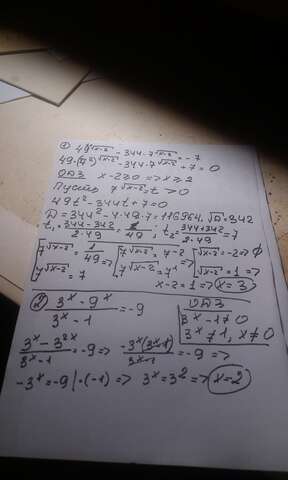 ① 49^{√x-2} - 344·7^{√x-2} = -7
49·(7²)^{√x-2} - 344·7^{√x-2} + 7 = 0
ОДЗ x-2≥0 => x≥2
Пусть 7^{√x-2} = t > 0
49t² - 344t + 7 = 0
D = 344² - 4·49·7 = 116964, √D = 342
t₁ = (344-342)/(2·49) = 1/49; t₂ = (344+342)/(2·49) = 7
[7^{√x-2} = 1/49 => [7^{√x-2} = 7^{-2} => [√x-2 = -2 => ∅
[7^{√x-2} = 7 [7^{√x-2} = 7¹ [√x-2 = 1 =>
x-2=1 => x=3
② (3^x - 9^x)/(3^x - 1) = -9
ОДЗ
3^x - 1 ≠ 0
3^x ≠ 1, x ≠ 0
(3^x - 3^{2x})/(3^x - 1) = -9 => -3^x(3^x - 1)/(3^x - 1) = -9 =>
-3^x = -9 |·(-1) => 3^x = 3² => x=2